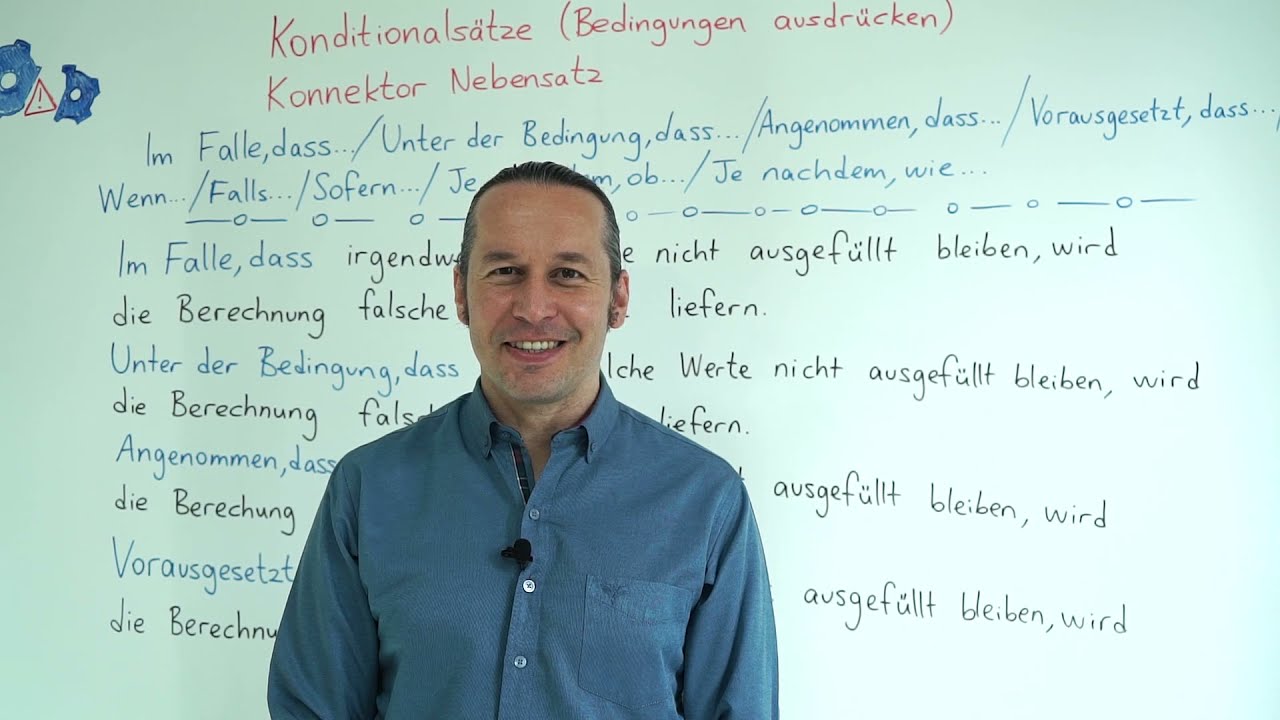 Konditionalsätze (Bedingungen ausdrücken)
Konnektor Nebensatz
Im Falle, dass... / Unter der Bedingung, dass... / Angenommen, dass... / Vorausgesetzt, dass... /
Wenn... / Falls... / Sofern... / Je ob... / Je nachdem, wie...
Im Falle, dass nicht ausgefüllt bleiben, wird
die Berechnung falsche liefern.
Unter der Bedingung, dass Werte nicht ausgefüllt bleiben, wird
die Berechnung liefern.
Angenommen, dass ausgefüllt bleiben, wird
die Berechung
Vorausgesetzt ausgefüllt bleiben, wird
die